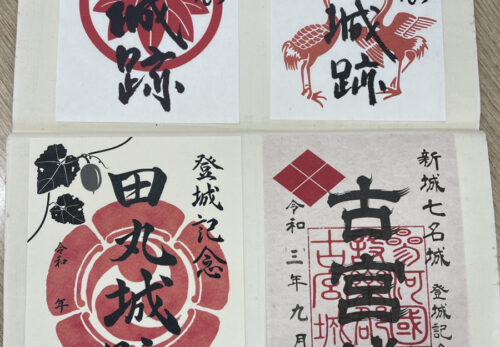 城跡
城跡
新城七名城 登城記念
古宮城
令和三年九月
登城記念
田丸城
令和 年